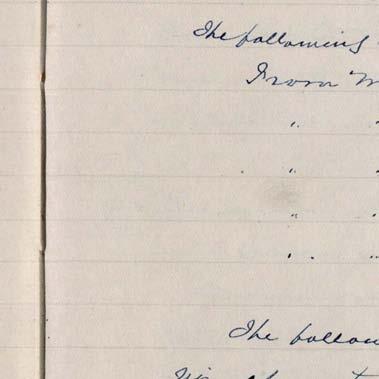 The following
From
" "
" "
" "
" "
The follow